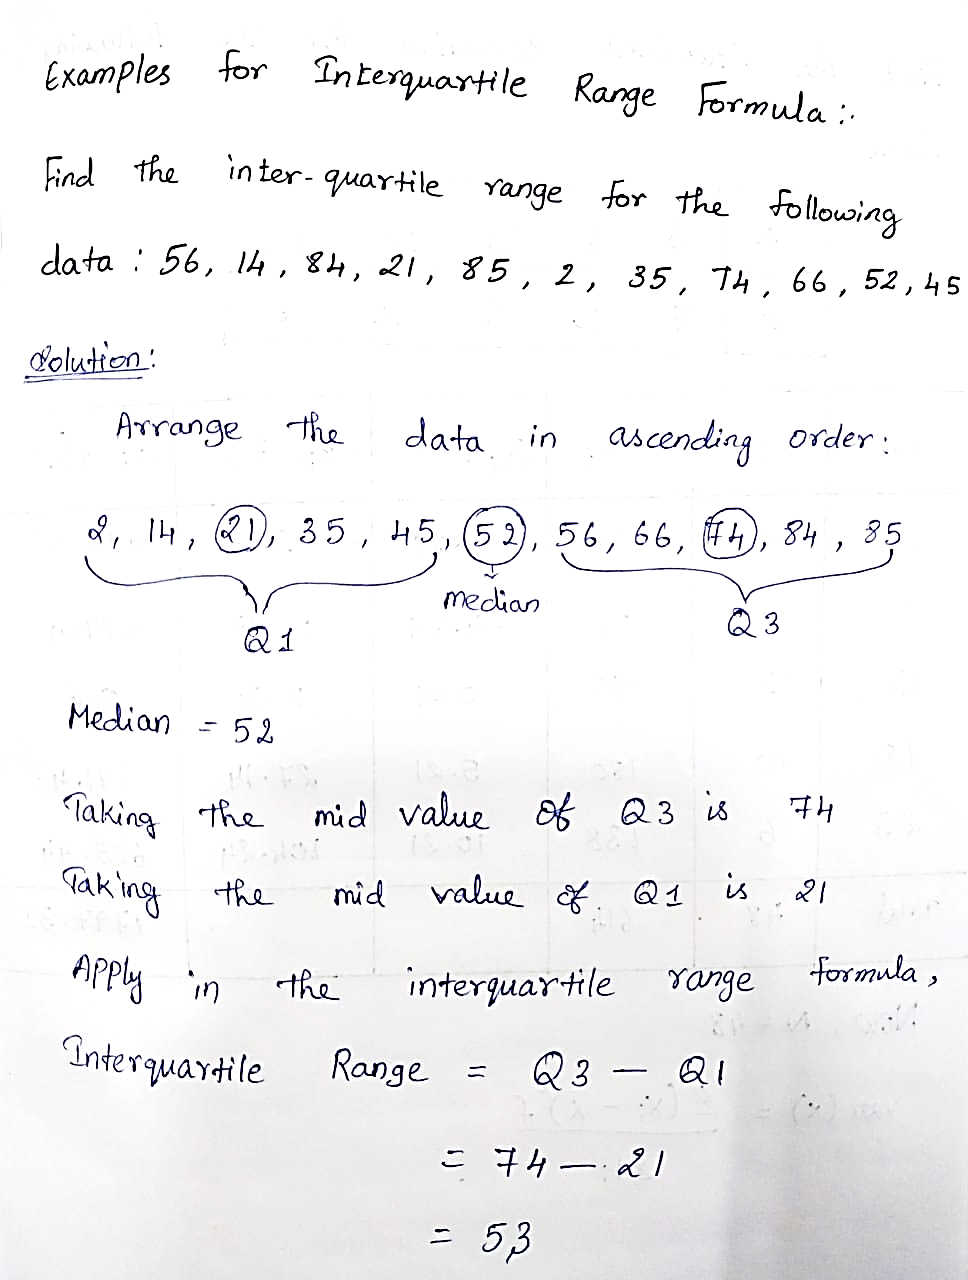 Examples for Interquartile Range Formula :.
Find the inter-quartile range for the following
data : 56, 14, 84, 21, 85, 2, 35, 74, 66, 52, 45
Solution:
Arrange the data in ascending order:
2, 14, 21, 35, 45, 52, 56, 66, 74, 84, 85
median
Q1
Q3
Median = 52
Taking the mid value of Q3 is 74
Taking the mid value of Q1 is 21
Apply in the interquartile range formula,
Interquartile Range = Q3 — Q1
= 74 — 21
= 53